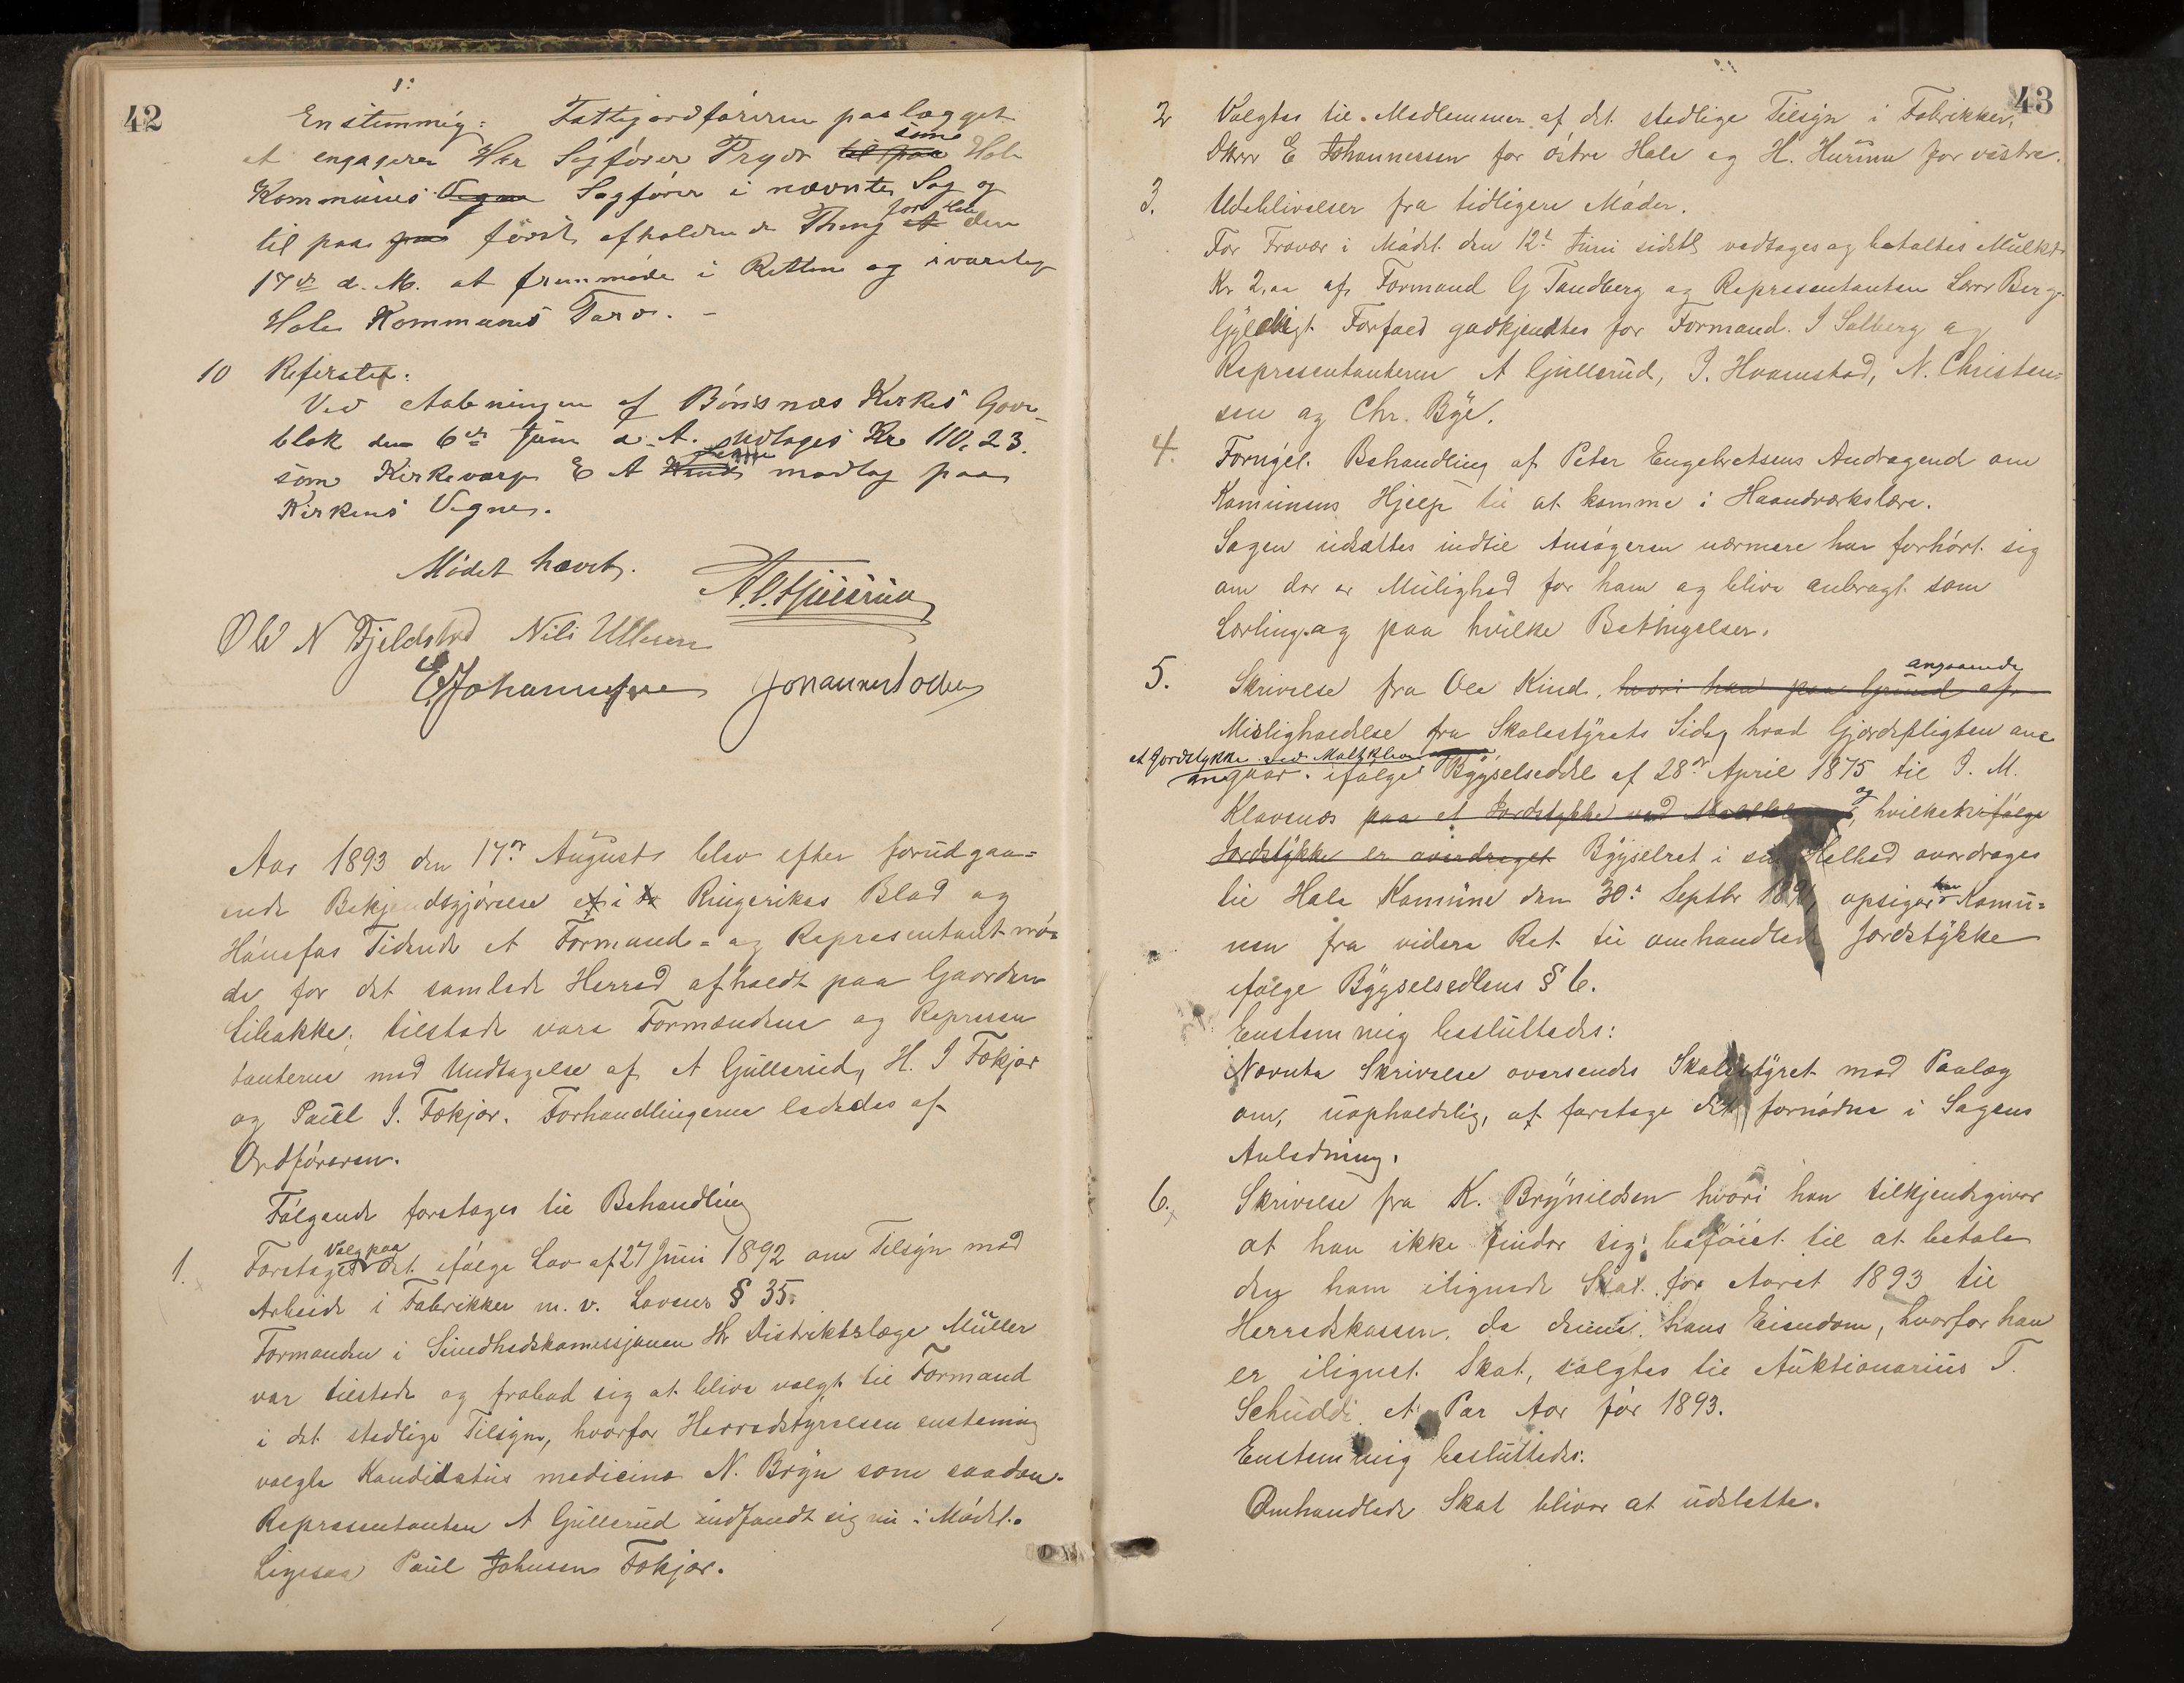 42
1:
Enstemmig: Fattigordføreren paalægget
at engagere Hr Sagfører Prydz som Hole
Kommunes Sagfører i nævnte Sag og
til paa første afholdende Thing for Hole den
17de d. M. at fremmøde i Retten og ivaretag
Hole Kommunes Tarv. –
10 Referater:
Ved Aabningen af Bönsnæs Kirkes Gave
blok den 6te Juni d. A. modtoges Kr. 110,23.
som Kirkeværge E A modtog paa
Kirkens Vegne.
Mödet hævet.
Ole N Fjeldstad Nils Ullern
E. Johannessen
Aar 1893 den 17de August blev efter forudgaa=
ende Bekjendtgjørelse i Ringerikes Blad og
Hönefos Tidende et Formand= og Representantmö=
de for det samlede Herred afholdt paa Gaarden
Libakke; tilstede vare Formændene og Represen
tanterne med Undtagelse af A Gullerud, H. J Fekjær
og Paul J. Fekjær. Forhandlingerne lededes af
Ordföreren.
Fölgende foretoges til Behandling
1. Foretoges Valg paa det ifölge Lov af 27 Juni 1892 om Tilsyn med
Arbeide i Fabrikker m. v. Lovens § 35.
Formanden i Sundhedskomissjonen Hr Distriktslæge Müller
var tilstede og frabad sig at blive valgt til Formand
i det stedlige Tilsyn, hvorfor Herredstyrelsen enstemig
valgte Kandidatus medicine N. Bryn som saadan.
Representanten A Gullerud indfandt sig nu i Mödet.
Ligesaa Paul Johnsen Fekjær.
43
2 Valgtes til Medlemmer af det stedlige Tilsyn i Fabrikker,
Dhrr E Johannessen for östre Hole og H. Hurum for vestre.
3. Udeblivelser fra tidligere Möder.
For Fravær i Mödet den 12te Juni sidstl vedtages og betaltes Mulkt
Kr 2,00 af Formand G Tandberg og Representanten Lars Berg.
Gyldigt Forfald godkjendtes for Formand J Solberg og
Representanterne A Gullerud, J. Hvamstad, N. Christen=
sen og Chr. Bye.
4. Fornyet Behandling af Peter Engebretsens Andragend om
Komunens Hjelp til at komme i Haandværkslære.
Sagen udsættes indtil Ansögeren nærmere har forhört sig
om der er Mulighed for ham og blive anbragt som
Lærling og paa hvilke Betingelser.
5. Skrivelse fra Ole Kind, hvori han paa Grund af angaaende
Misligholdelse fra Skolestyrets Side, hvad Gjerdepligten
et Jordstykke ved
angaar ifölge Bygselseddel af 28de April 1875 til J. M.
Klovenæs paa et Jordstykke ved og, hvilket ifölge
Jordstykke er overdraget Bygselret i sin Helhed overdroges
til Hole Komune den 30te Septbr , opsiger han Komu=
nen fra videre Ret til omhandlede Jordstykke
ifölge Bygselsedlens § 6.
Enstemmig besluttedes:
Nævnte Skrivelse oversendes Skolestyret med Paalæg
om, uopholdelig, at foretage det fornödne i Sagens
Anledning.
6. Skrivelse fra K. Brynildsen hvori han tilkjendegiver
at han ikke finder sig beföiet til at betale
den ham ilignede Skat for Aaret 1893 til
Herredskassen, da denne hans Eiendom, hvorfor han
er ilignet Skat, solgtes til Auktionarius T.
Schuddi et Par Aar för 1893.
Enstemmig besluttedes:
Omhandlede Skat bliver at udslette.